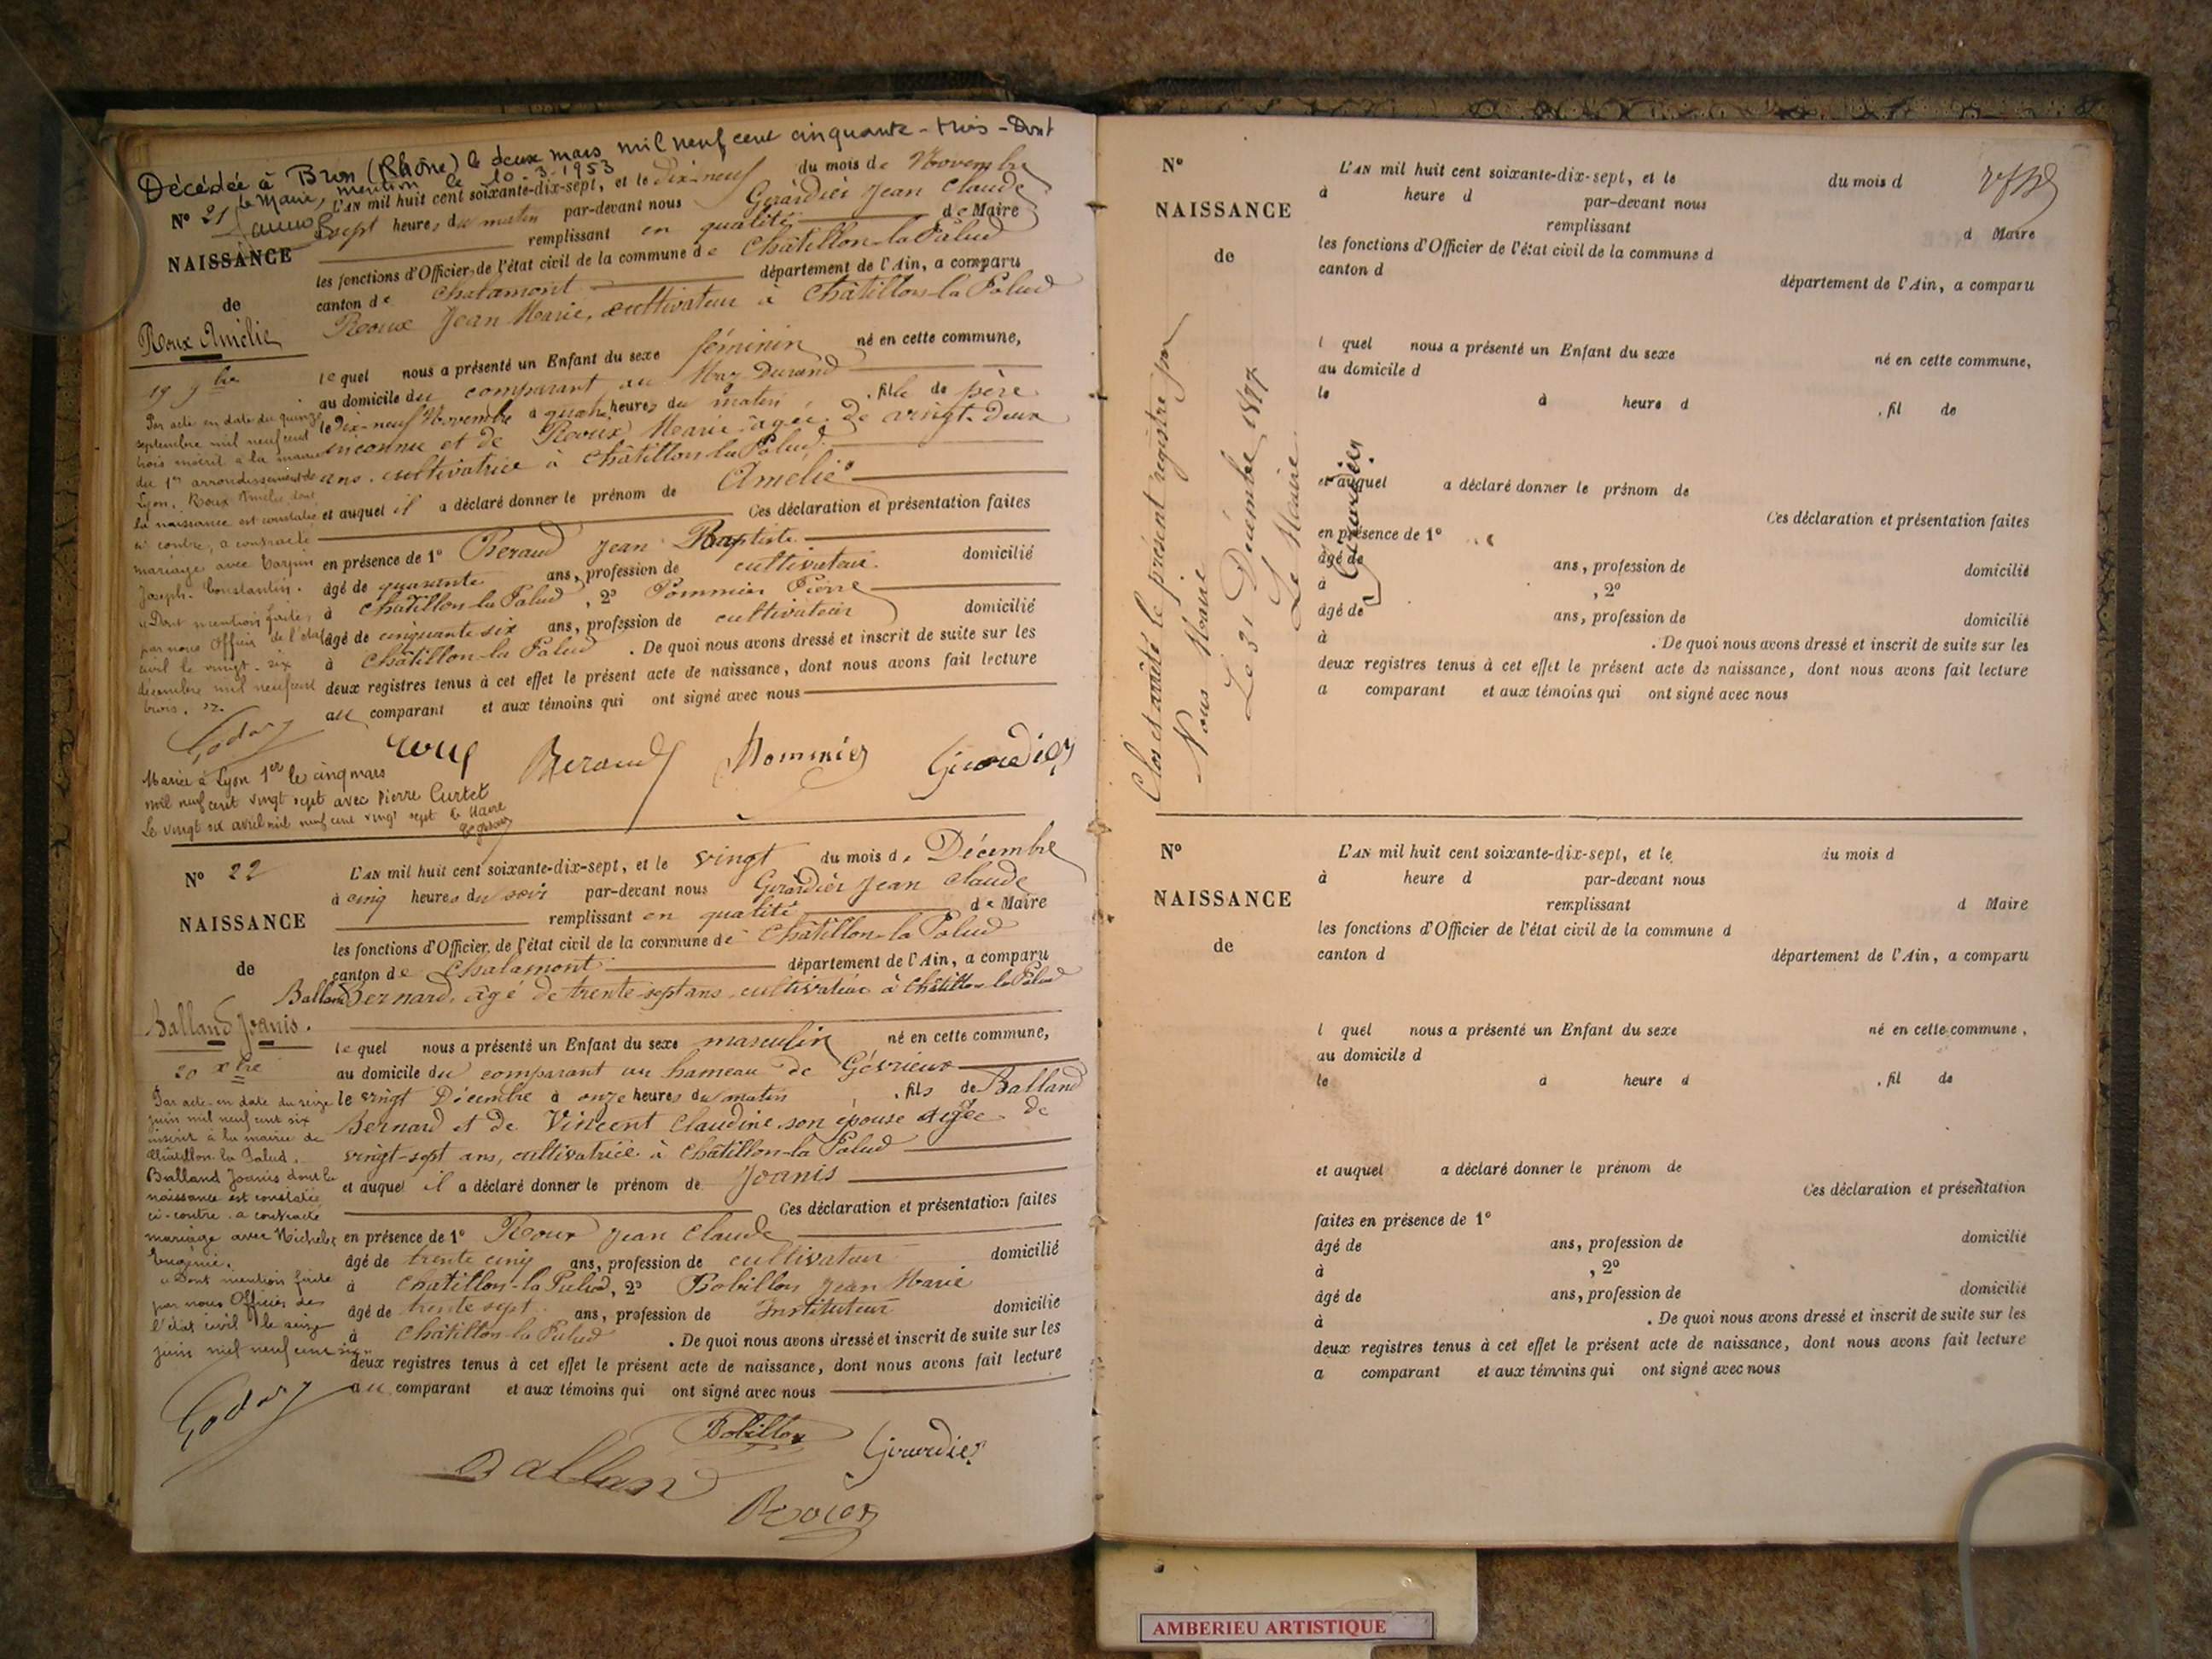 Décédée à Bron (Rhône) le deux mars mil neuf cent cinquante-trois - Dont
mention le 10-3-1953
le Maire,
N° 21
NAISSANCE
de
Roux Amélie
19 9bre
L'AN mil huit cent soixante-dix-sept, et le dix-neuf du mois de Novembre
à sept heures du matin par-devant nous Girardier Jean Claude
remplissant en qualité de Maire
les fonctions d'Officier de l'état civil de la commune de Châtillon-la-Palud
canton de Chalamont département de l'Ain, a comparu
Roux Jean Marie, cultivateur à Châtillon-la-Palud
lequel nous a présenté un Enfant du sexe féminin né en cette commune,
au domicile du comparant au Maz Durand
le dix-neuf Novembre à quatre heures du matin , fille de père
inconnu et de Roux Marie âgée de vingt-deux
ans, cultivatrice à Châtillon-la-Palud
et auquel il a déclaré donner le prénom de Amélie
Ces déclaration et présentation faites
en présence de 1° Beraud Jean Baptiste
domicilié
âgé de quarante ans, profession de cultivateur
à Châtillon-la-Palud, 2° Pommier Pierre
âgé de cinquante six ans, profession de cultivateur domicilié
à Châtillon-la-Palud . De quoi nous avons dressé et inscrit de suite sur les
deux registres tenus à cet effet le présent acte de naissance, dont nous avons fait lecture
au comparant et aux témoins qui ont signé avec nous
Par acte en date du quinze
septembre mil neuf cent
trois inscrit à la mairie
du 1er arrondissement de
Lyon, Roux Amélie dont
la naissance est constatée
ci contre, a contracté
mariage avec
Joseph Constantin.
"Dont mention faite
par nous Officier de l'état
civil le vingt-six
décembre mil neuf cent
trois. "
Godar
roux Beraud Pommier Girardier
Mariée à Lyon 1er le cinq mars
mil neuf cent vingt sept avec Pierre Curtet
Le vingt six avril mil neuf cent vingt sept le Maire
N° 22
NAISSANCE
de
Balland Joanis.
20 Xbre
L'AN mil huit cent soixante-dix-sept, et le vingt du mois de Décembre
à cinq heures du soir par-devant nous Girardier Jean Claude
remplissant en qualité de Maire
les fonctions d'Officier de l'état civil de la commune de Châtillon-la-Palud
canton de Chalamont département de l'Ain, a comparu
Balland Bernard, âgé de trente-sept ans cultivateur à Châtillon-la-Palud
lequel nous a présenté un Enfant du sexe masculin né en cette commune,
au domicile du comparant au hameau de Gévrieux
le vingt Décembre à onze heures du matin , fils de Balland
Bernard et de Vincent Claudine son épouse âgée de
vingt-sept ans, cultivatrice à Châtillon-la-Palud
et auquel il a déclaré donner le prénom de Joanis
Ces déclaration et présentation faites
en présence de 1° Roux Jean Claude
âgé de trente cinq ans, profession de cultivateur domicilié
à Châtillon-la-Palud, 2° Bobillon Jean Marie
âgé de trente sept ans, profession de Instituteur domicilié
à Châtillon-la-Palud . De quoi nous avons dressé et inscrit de suite sur les
deux registres tenus à cet effet le présent acte de naissance, dont nous avons fait lecture
au comparant et aux témoins qui ont signé avec nous
Par acte en date du seize
juin mil neuf cent six
inscrit à la mairie de
Châtillon la Palud.
Balland Joanis dont la
naissance est constatée
ci-contre a contracté
mariage avec Michelet
Eugénie.
"Dont mention faite
par nous Officier de
l'état civil le seize
juin mil neuf cent six"
Godar
Bobillon Girardier
Balland
Roux
N°
NAISSANCE
de
L'AN mil huit cent soixante-dix-sept, et le du mois d
à heure d par-devant nous
remplissant d Maire
les fonctions d'Officier de l'état civil de la commune d
canton d département de l'Ain, a comparu
l quel nous a présenté un Enfant du sexe né en cette commune,
au domicile d
le à heure d , fil de
et auquel a déclaré donner le prénom de
Ces déclaration et présentation faites
en présence de 1°
âgé de ans, profession de domicilié
à , 2°
âgé de ans, profession de domicilié
à . De quoi nous avons dressé et inscrit de suite sur les
deux registres tenus à cet effet le présent acte de naissance, dont nous avons fait lecture
a comparant et aux témoins qui ont signé avec nous
Clos et arrêté le présent registre par
Nous Maire
Le 31 Décembre 1877
Le Maire
Girardier
N°
NAISSANCE
de
L'AN mil huit cent soixante-dix-sept, et le du mois d
à heure d par-devant nous
remplissant d Maire
les fonctions d'Officier de l'état civil de la commune d
canton d département de l'Ain, a comparu
l quel nous a présenté un Enfant du sexe né en cette commune,
au domicile d
le à heure d , fil de
et auquel a déclaré donner le prénom de
Ces déclaration et présentation
faites en présence de 1°
âgé de ans, profession de domicilié
à , 2°
âgé de ans, profession de domicilié
à . De quoi nous avons dressé et inscrit de suite sur les
deux registres tenus à cet effet le présent acte de naissance, dont nous avons fait lecture
a comparant et aux témoins qui ont signé avec nous
AMBERIEU ARTISTIQUE